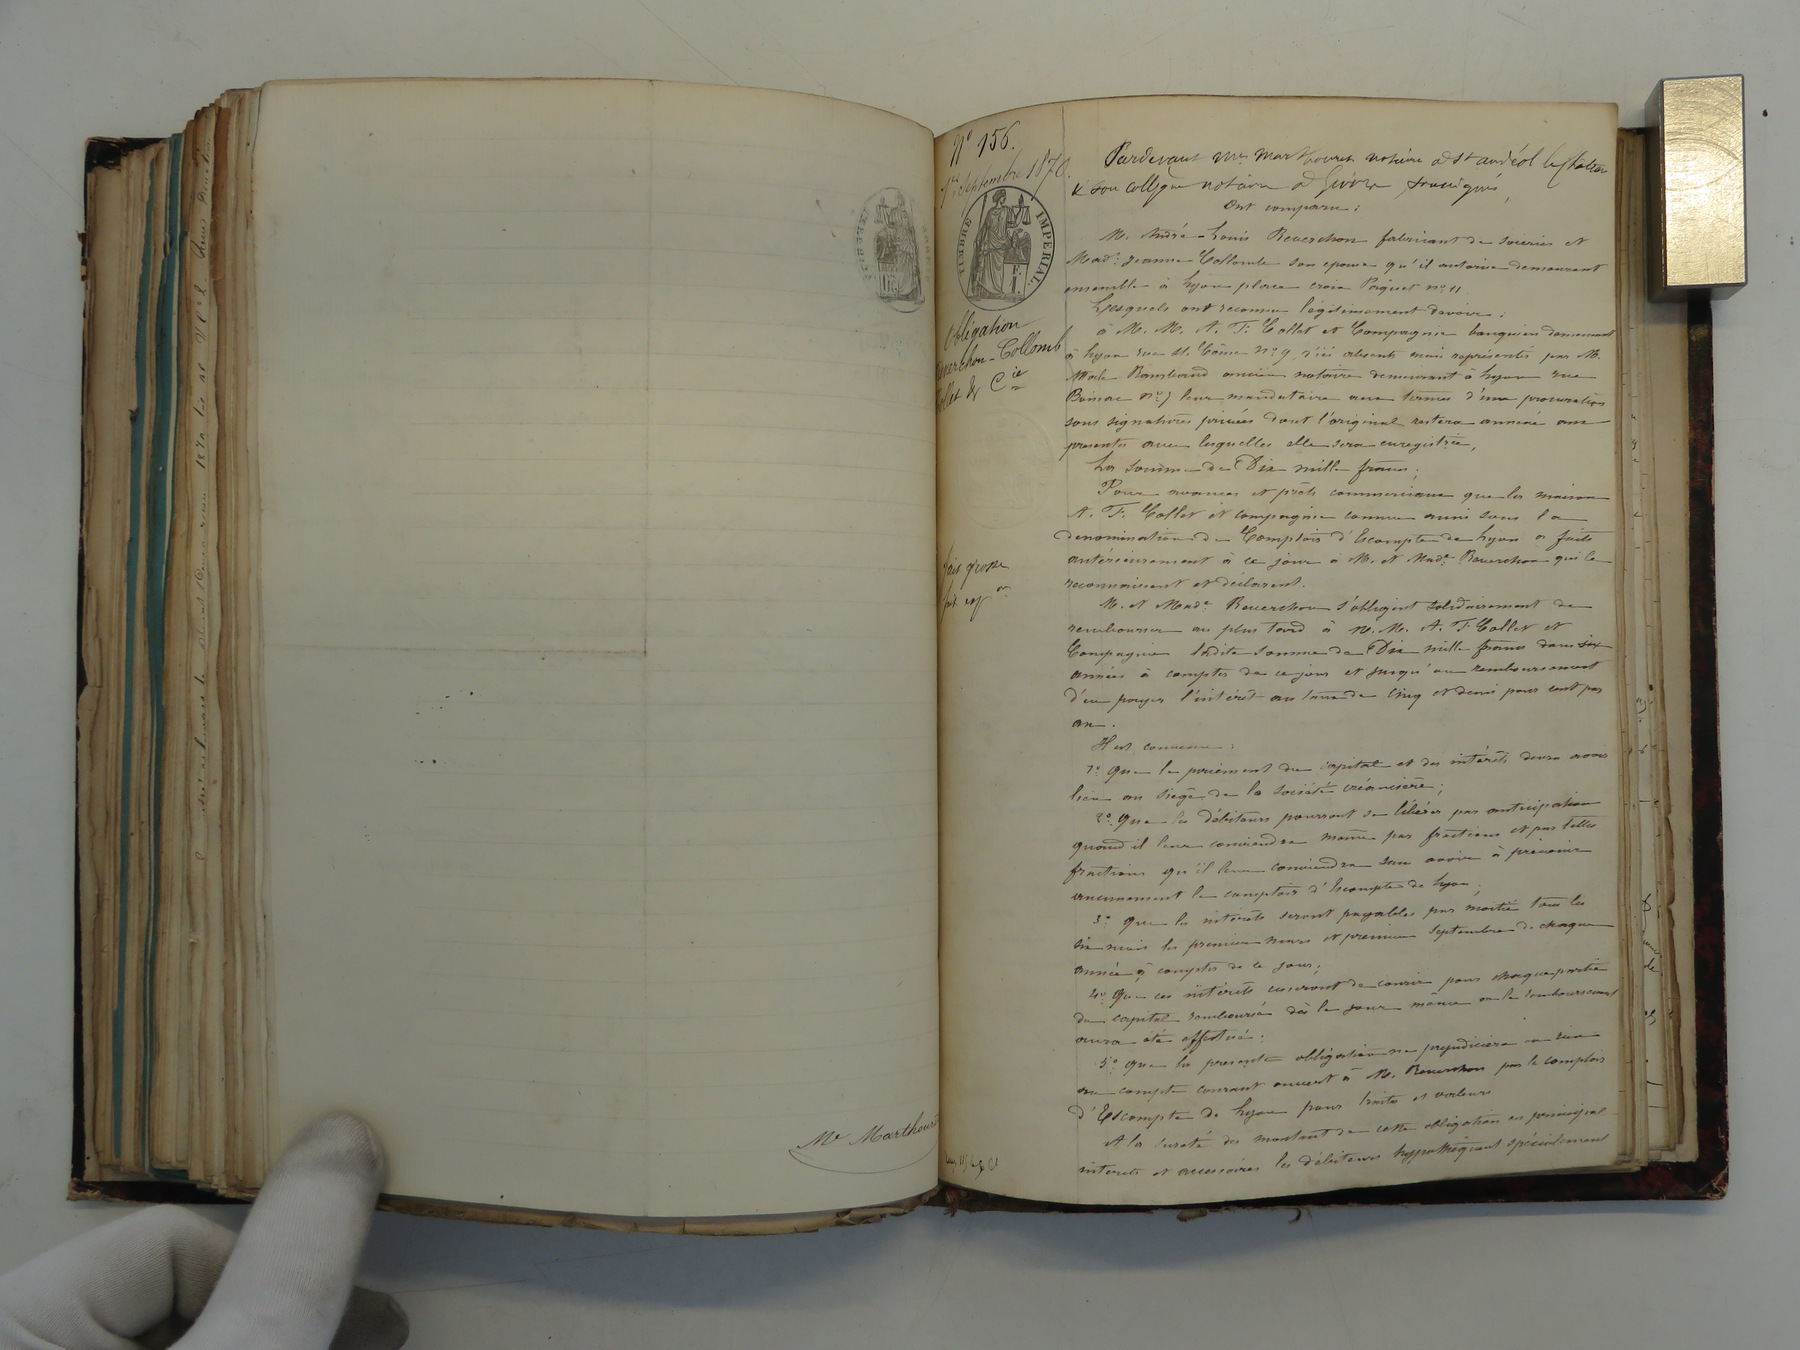 Me Marthouret
No 156.
1er Septembre 1870.
TIMBRE IMPERIAL.
F.
1.
Obligation
Reverchon-Collomb
Collet & Cie
fait grosse
fait exp on
Pardevant Me Marthouret notaire à St andéol le château
& son collègue notaire à Givors soussignés,
Ont comparu :
M. André-Louis Reverchon fabricant de soieries et
Made Jeanne Collomb son epouse qu'il autorise demeurant
ensemble à Lyon place croix Paquet no 11
Lesquels ont reconnu légitimement devoir :
à M. M. A. F. Collet et Compagnie banquiers demeurant
à Lyon rue St. Côme no 9, ici absents mais représentés par M.
ancien notaire demeurant à Lyon rue
Boissac no 7 leur mandataire aux termes d'une procuration
sous signatures privées dont l'original restera annexé aux
presentes avec lesquelles elle sera enregistrée,
La somme de Dix mille francs ;
Pour avances et prêts commerciaux que la maison
A. F. Collet et compagnie connue aussi sous la
denomination de Comptoir d'Escompte de Lyon a faits
antérieurement à ce jour à M. et Made Reverchon qui le
reconnaissent et déclarent.
M. et Made Reverchon s'obligent solidairement de
rembourser au plus tard à M. M. A. F. Collet et
Compagnie ladite somme de Dix mille francs dans six
années à compter de ce jour et jusqu'au remboursement
d'en payer l'intérêt au taux de cinq et demi pour cent par
an.
Il est convenu :
1o Que le paiement du capital et des intérêts devra avoir
lieu au siège de la société créancière ;
2o Que les débiteurs pourront se libérer par anticipation
quand il leur conviendra même par fractions et par telles
fractions qu'il leur conviendra sans avoir à prévenir
aucunement le comptoir d'Escompte de Lyon ;
3o Que les intérêts seront payables par moitié tous les
six mois les premier mars et premier septembre de chaque
année à compter de ce jour ;
4o Que ces intérêts cesseront de courir pour chaque partie
du capital remboursée dès le jour même où le remboursement
aura été effectué ;
5o Que la présente obligation ne prejudiciera en rien
au compte courant ouvert à M. Reverchon par le comptoir
d'Escompte de Lyon pour traites et valeurs
A la sureté du montant de cette obligation en principal
interets et accessoires les débiteurs hypothèquent spécialement